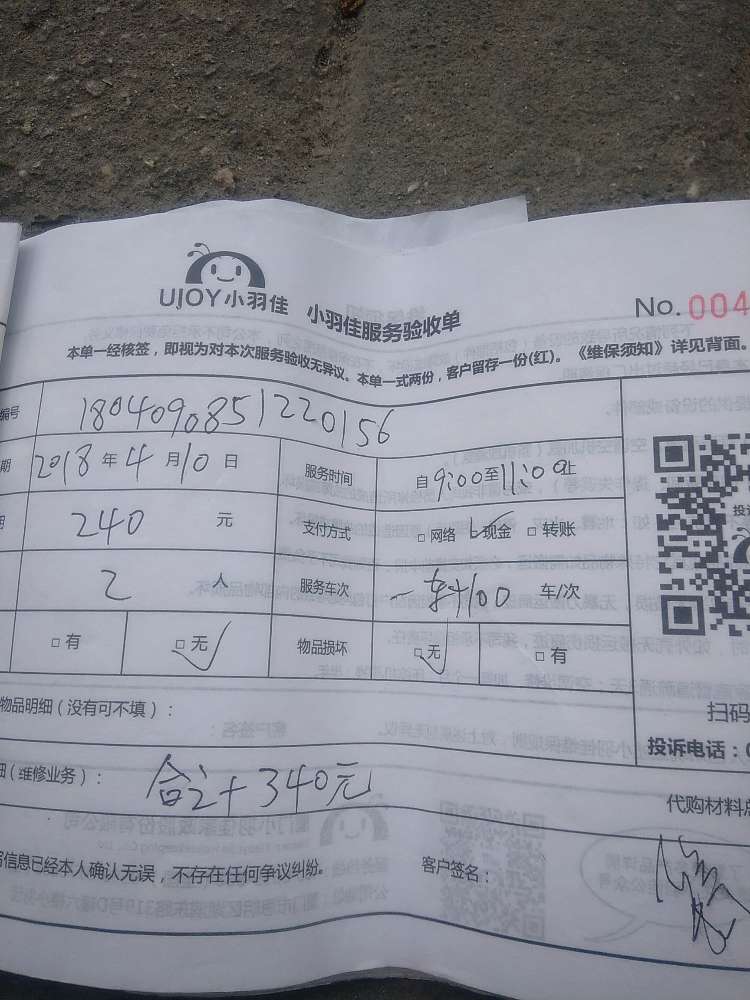 UJOY小羽佳 小羽佳服务验收单
No.004
本单一经核签，即视为对本次服务验收无异议。本单一式两份，客户留存一份(红)。《维保须知》详见背面。
编号 1804090851220156
期 2018年4月10日 服务时间 自9:00至11:00止
240 元 支付方式 □网络 □现金 □转账
2 人 服务车次 一车100 车/次
□有 □无 物品损坏 □无 □有
物品明细（没有可不填）：
扫码
投诉电话：0
（维修业务）： 合计340元
代购材料总
信息已经本人确认无误，不存在任何争议纠纷。 客户签名：